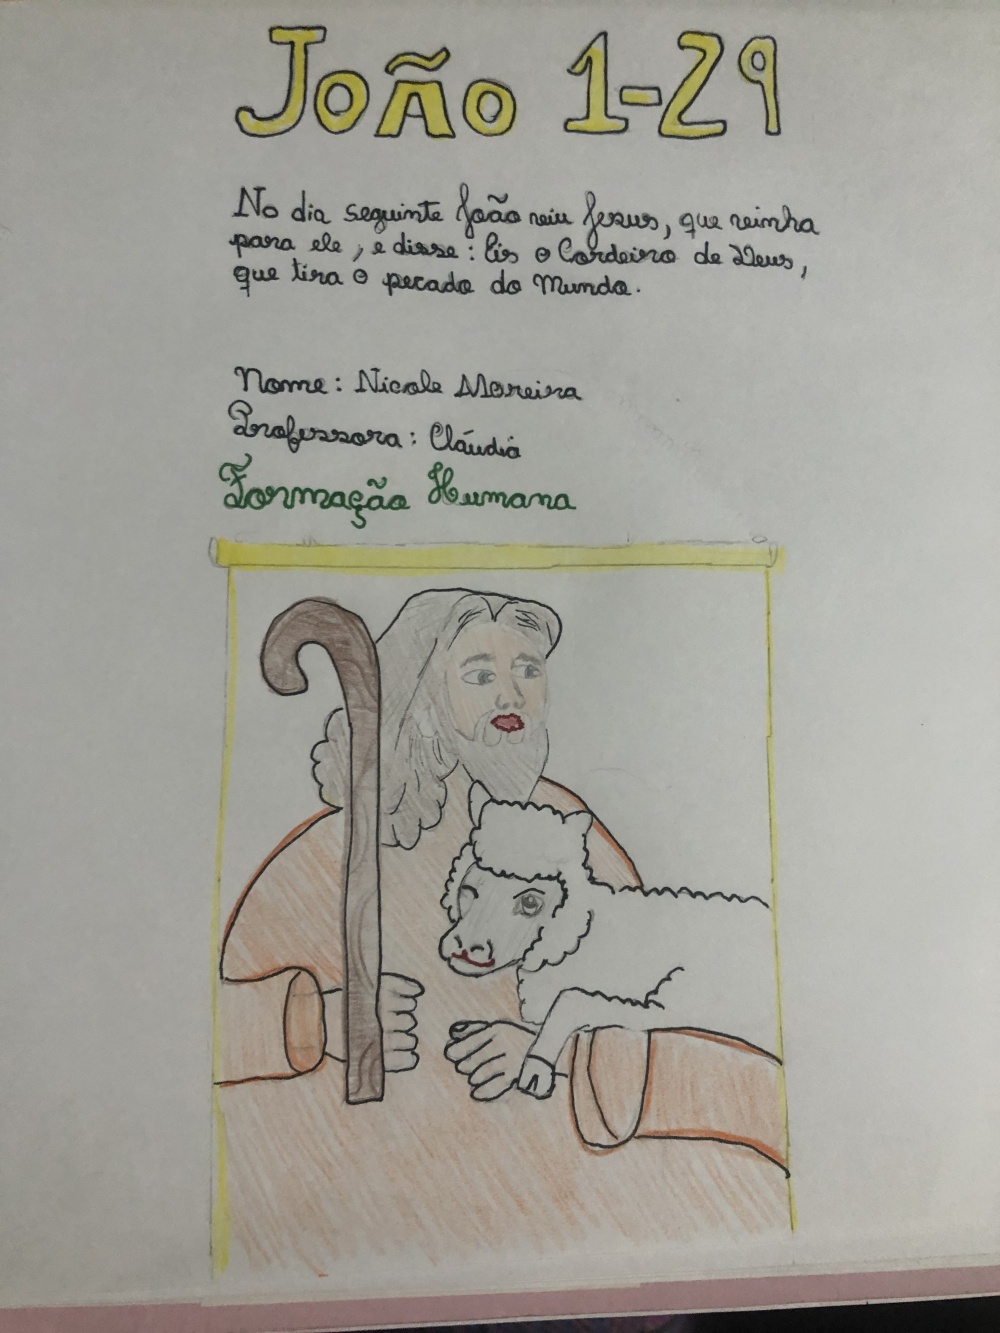 João 1-29
No dia seguinte João veiu Jesus, que veinha
para ele, e disse: Eis o Cordeiro de Deus,
que tira o pecado do Mundo.
Nome: Nicole Moreira
Professora: Cláudia
Formação Humana